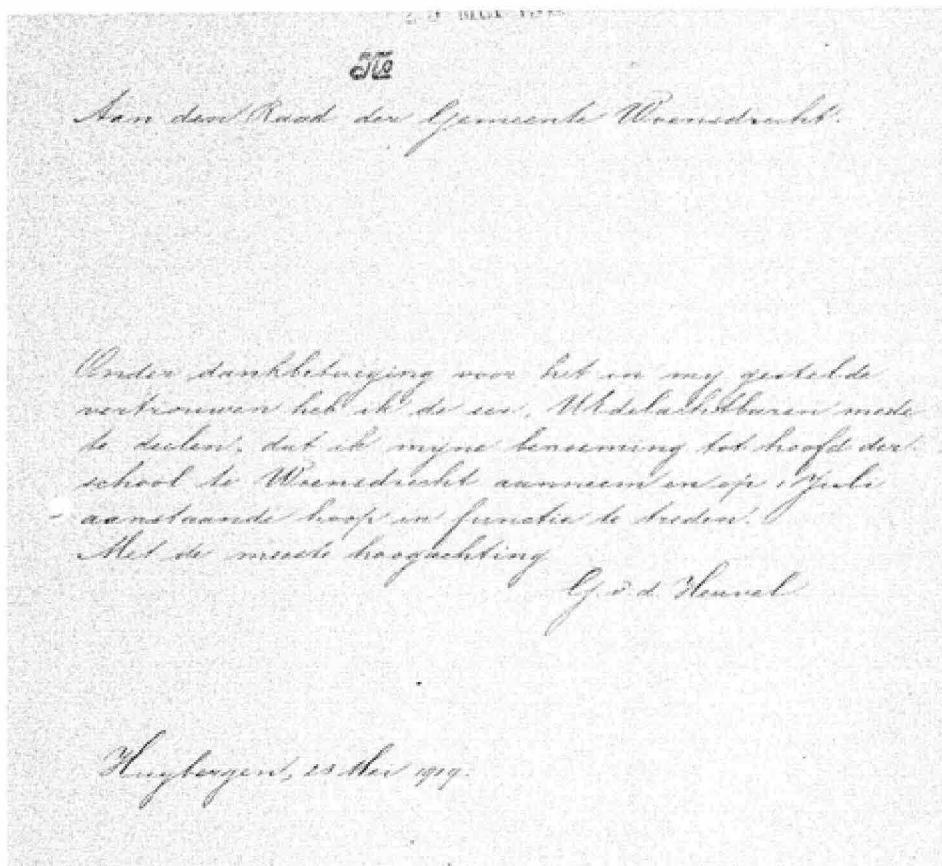 No
Aan den Raad der Gemeente Woensdrecht.
Onder dankbetuiging voor het in my gestelde
vertrouwen heb ik de eer, UEdelachtbaren mede
te deelen, dat ik mijne benoeming tot hoofd der
school te Woensdrecht aanneem en op 1 Juli
aanstaande hoop in functie te treden.
Met de meeste hoogachting
G. v. d. Heuvel
Huybergen, Mei 1919.